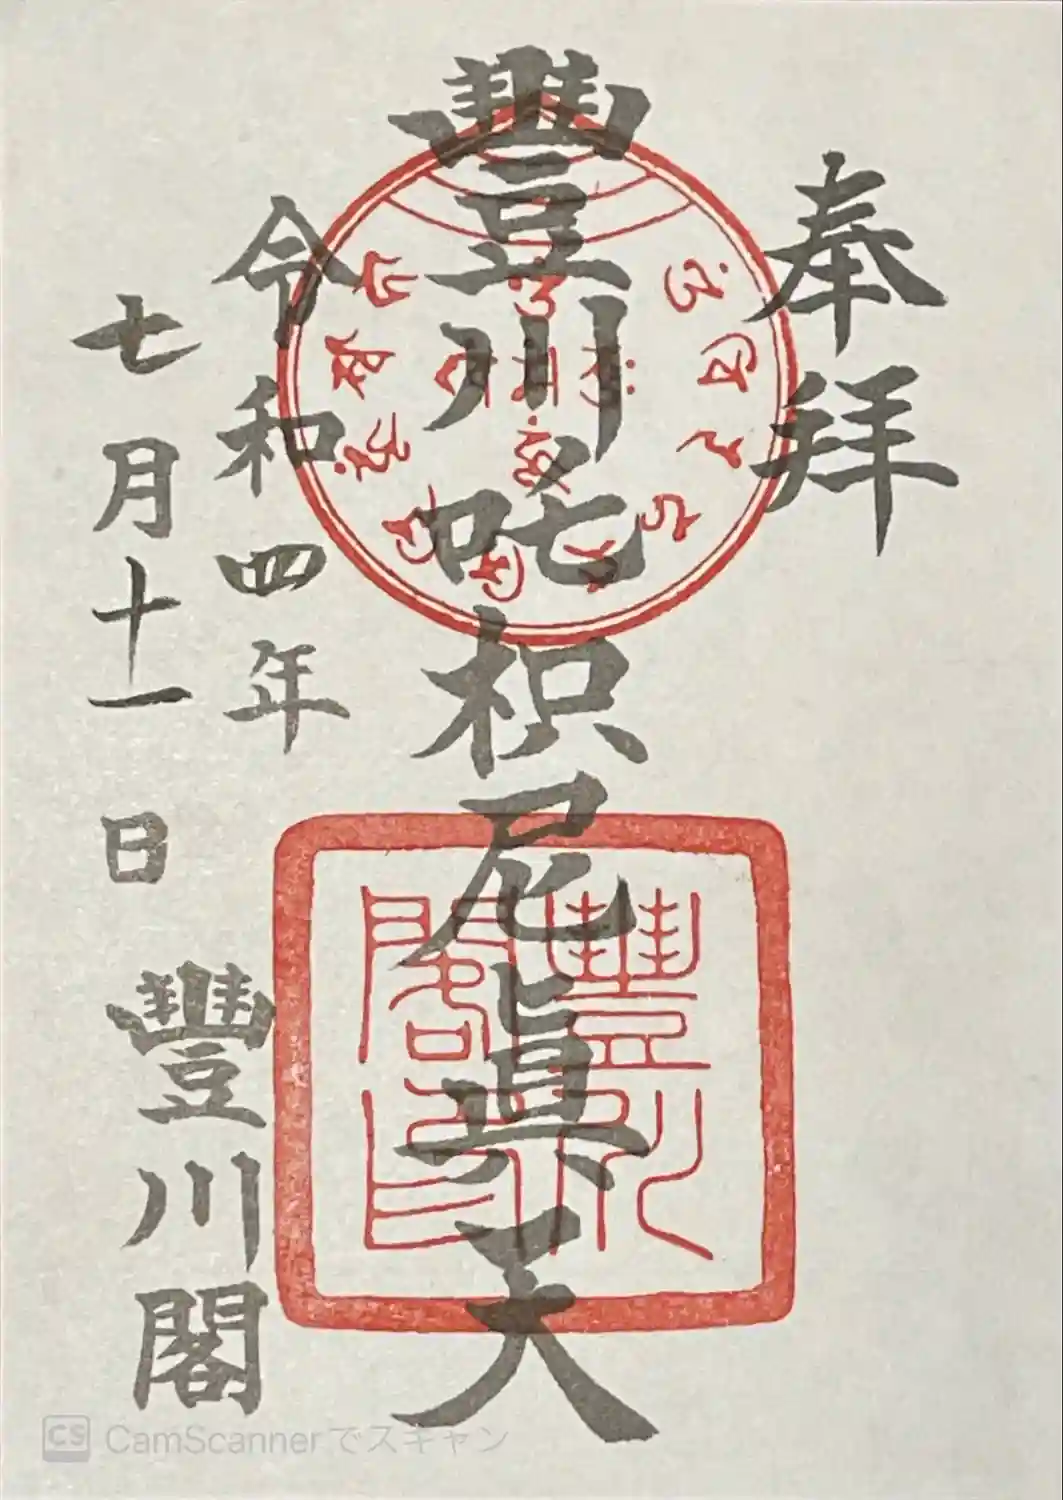 奉拝
豐川吒枳尼眞天
令和四年
七月十一日
豐川閣
豐川閣印
CS CamScannerでスキャン